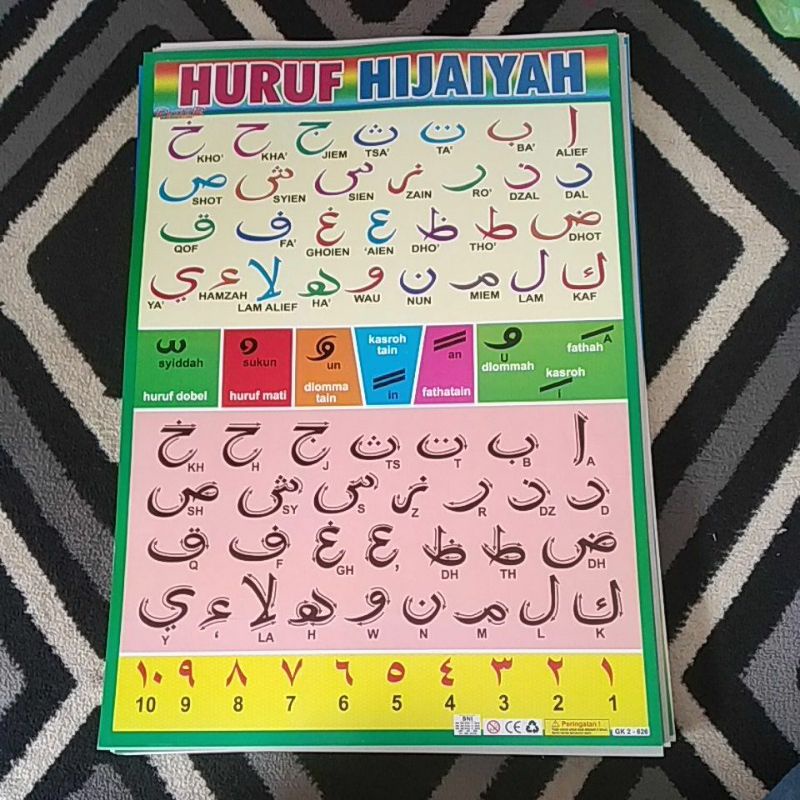 HURUF HIJAIYAH
ا ب ت ث ج ح خ
KHO' KHA' JIEM TSA' TA' BA' ALIEF
د ذ ر ز س ش ص
SHOT SYIEN SIEN ZAIN RO' DZAL DAL
ض ط ظ ع غ ف ق
QOF FA' GHOIEN 'AIEN DHO' THO' DHOT
ك ل م ن و ه لا ء ي
YA' HAMZAH LAM ALIEF HA' WAU NUN MIEM LAM KAF
syiddah
huruf dobel
sukun
huruf mati
un
dlomma
tain
kasroh
tain
in
an
fathatain
U
dlommah
A
fathah
kasroh
i
ا ب ت ث ج ح خ
KH H J TS T B A
د ذ ر ز س ش ص
SH SY S Z R DZ D
ض ط ظ ع غ ف ق
Q F GH , DH TH DH
ك ل م ن و ه لا ء ي
Y ‘ LA H W N M L K
١ ٢ ٣ ٤ ٥ ٦ ٧ ٨ ٩ ١٠
10 9 8 7 6 5 4 3 2 1
SNI
CE
Peringatan !
GK 2 - 626